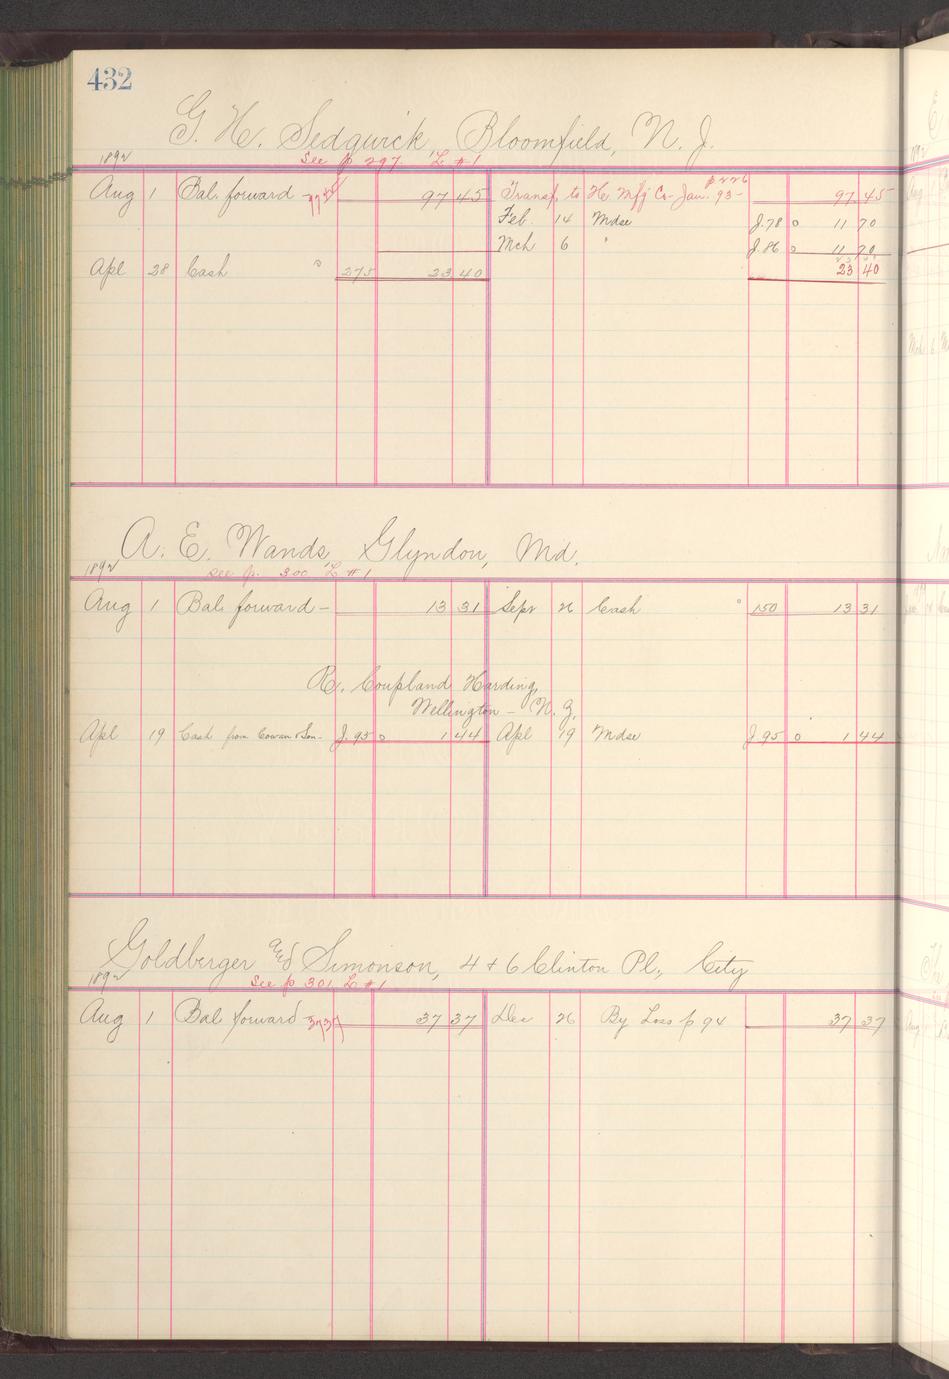 432
G. H. Sedgwick, Bloomfield, N. J.
1892 See p 297 "L #1
p 226
Aug 1 Bal. forward - 97 45 97 45 Transf. to H. Mfg Co - Jan. 93 - 97 45
Feb. 14 Mdse J. 78 o 11 70
Mch 6 " J. 86 o 11 70
Apl 28 Cash o 275 23 40 23 40
A. E. Wands, Glyndon, Md.
1892 See p. 300 "L #1
Aug 1 Bal. forward - 13 31 Sept 26 Cash o 150 13 31
R. Coupland Harding,
Wellington - N. Z.
Apl 19 Cash from Cowan & Son - J. 95 o 1 44 Apl 19 Mdse J 95 o 1 44
Goldberger and Simonson, 4 + 6 Clinton Pl., City
1892 See p 301 L #1
Aug 1 Bal forward - 37 37 37 37 Dec 26 By Loss p 94 37 37